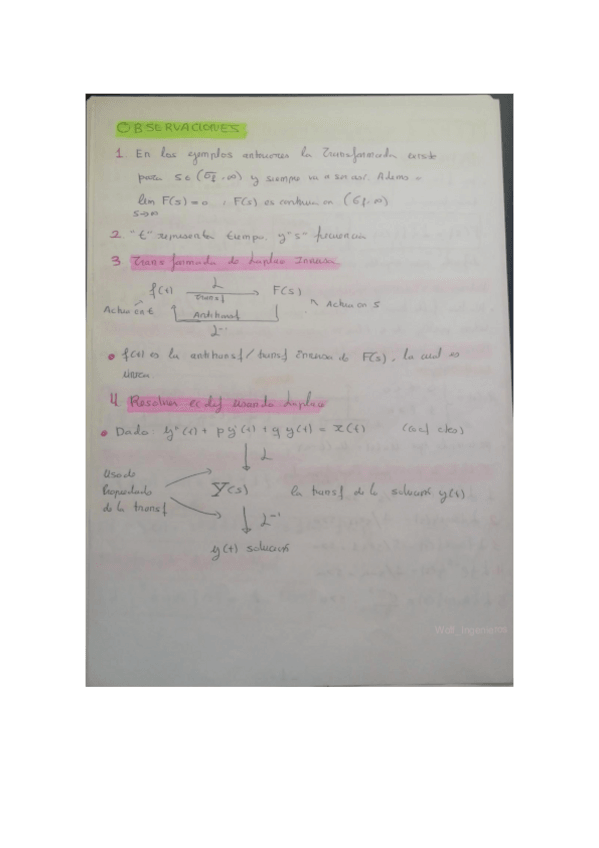 OBSERVACIONES
1 En los ejemplos anteriores la Transformada existe
para s ∈ (σf, ∞) y siempre va a ser así. Además
lim F(s) = 0, F(s) es continua en (σf, ∞)
s→∞
2 "t" representa tiempo y "s" frecuencia
3 Transformada de Laplace Inversa
f(t) L Transf → F(s)
Actua en t Antitransf Actua en s
L⁻¹
• f(t) es la antitransf/transf inversa de F(s), la cual es
única
4 Resolver ec dif usando Laplace
• Dado y''(t) + p y'(t) + q y(t) = x(t) (coef ctes)
L
Uso de
Propiedades Y(s) la transf de la solución y(t)
de la transf
L⁻¹
y(t) solución